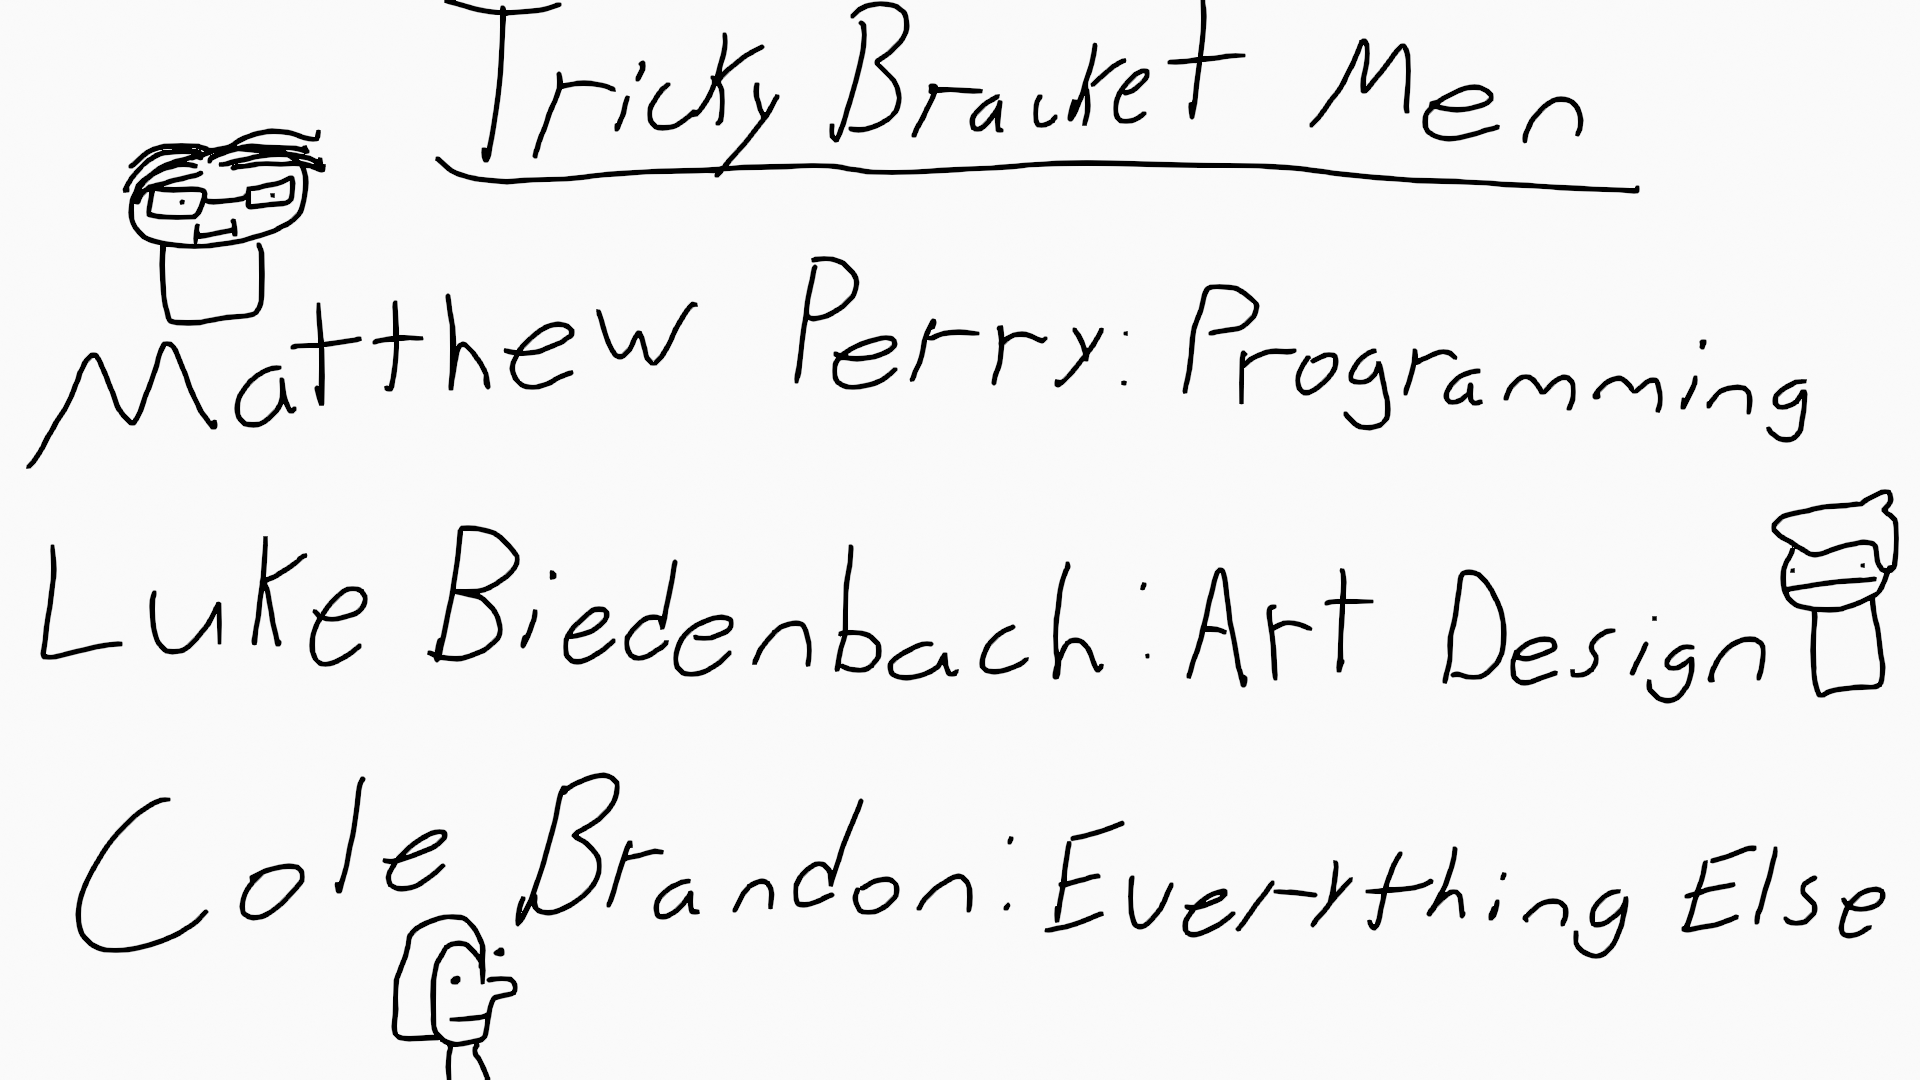 Tricky Bracket Men
Matthew Perry: Programming
Luke Biedenbach: Art Design
Cole Brandon: Everything Else